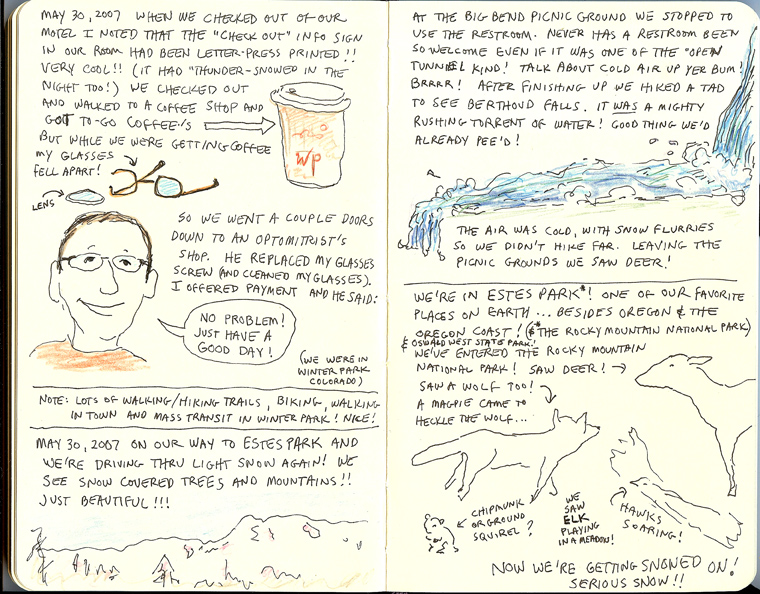 MAY 30, 2007 WHEN WE CHECKED OUT OF OUR
MOTEL I NOTED THAT THE "CHECK OUT" INFO SIGN
IN OUR ROOM HAD BEEN LETTER-PRESS PRINTED!!
VERY COOL!! (IT HAD "THUNDER-SNOWED IN THE
NIGHT TOO!) WE CHECKED OUT
AND WALKED TO A COFFEE SHOP AND
GOT TO-GO COFFEE'S
BUT WHILE WE WERE GETTING COFFEE
MY GLASSES
FELL APART!
WP
LENS
SO WE WENT A COUPLE DOORS
DOWN TO AN OPTOMITRIST'S
SHOP. HE REPLACED MY GLASSES
SCREW (AND CLEANED MY GLASSES).
I OFFERED PAYMENT AND HE SAID:
NO PROBLEM!
JUST HAVE A
GOOD DAY!
(WE WERE IN
WINTER PARK
COLORADO)
NOTE: LOTS OF WALKING/HIKING TRAILS, BIKING, WALKING
IN TOWN AND MASS TRANSIT IN WINTER PARK! NICE!
MAY 30, 2007 ON OUR WAY TO ESTES PARK AND
WE'RE DRIVING THRU LIGHT SNOW AGAIN! WE
SEE SNOW COVERED TREES AND MOUNTAINS!!
JUST BEAUTIFUL!!!
AT THE BIG BEND PICNIC GROUND WE STOPPED TO
USE THE RESTROOM. NEVER HAS A RESTROOM BEEN
SO WELCOME EVEN IF IT WAS ONE OF THE "OPEN
TUNNEL KIND! TALK ABOUT COLD AIR UP YER BUM!
BRRRR! AFTER FINISHING UP WE HIKED A TAD
TO SEE BERTHOUD FALLS. IT WAS A MIGHTY
RUSHING TORRENT OF WATER! GOOD THING WE'D
ALREADY PEE'D!
THE AIR WAS COLD, WITH SNOW FLURRIES
SO WE DIDN'T HIKE FAR. LEAVING THE
PICNIC GROUNDS WE SAW DEER!
WE'RE IN ESTES PARK*! ONE OF OUR FAVORITE
PLACES ON EARTH... BESIDES OREGON & THE
OREGON COAST! (&* THE ROCKY MOUNTAIN NATIONAL PARK)
& OSWALD WEST STATE PARK!
WE'VE ENTERED THE ROCKY MOUNTAIN
NATIONAL PARK! SAW DEER!
SAW A WOLF TOO!
A MAGPIE CAME TO
HECKLE THE WOLF...
CHIPMUNK
OR GROUND
SQUIREL?
WE
SAW
ELK
PLAYING
IN A MEADOW!
HAWKS
SOARING!
NOW WE'RE GETTING SNOWED ON!
SERIOUS SNOW!!